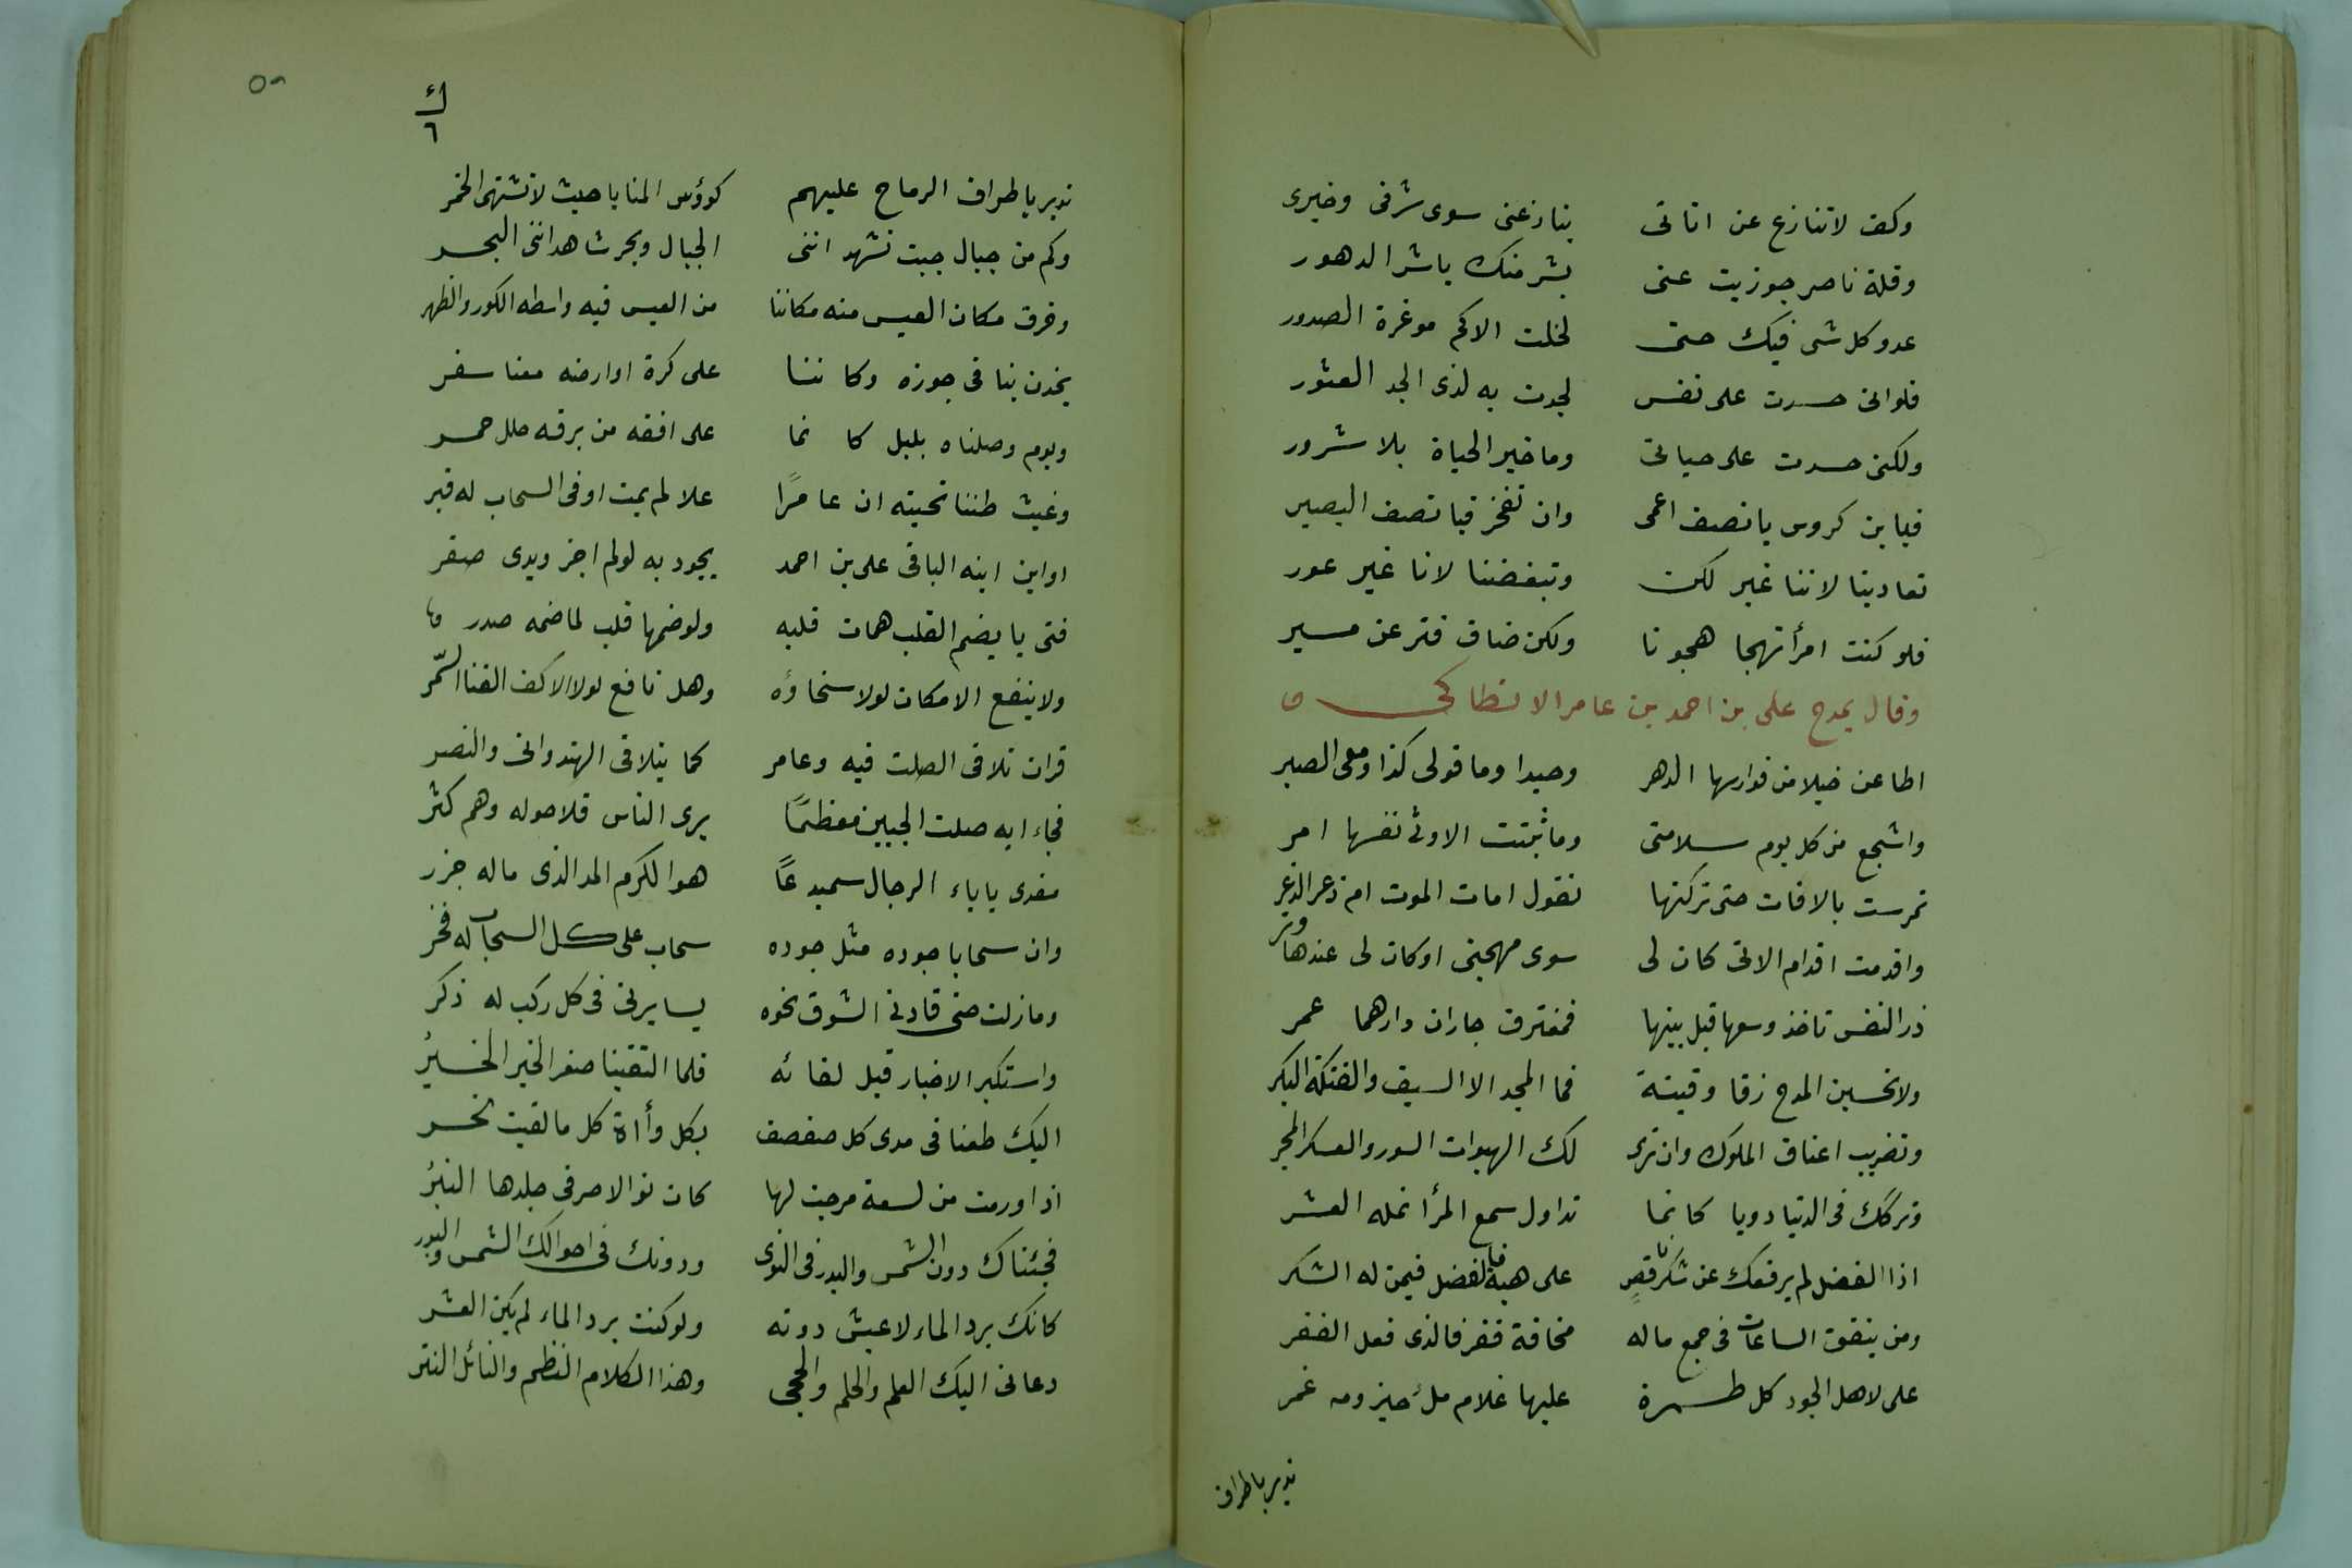 وكف لا تنازع عن اتانى ينازعنى سوى شرفى وخيرى
وقلة ناصر جوزيت عنى بشر منك ياشر الدهور
عدو كل شى فيك حتى لخلت الاكم موغرة الصدور
فلوانى حسدت على نفس لجدت به لذى الجد العثور
ولكنى حسدت على حياتى وما خير الحياة بلا شرور
فيابن كروس يا نصف اعمى وان تفخر فيا نصف البصير
تعادينا لاننا غير لكن وتبغضنا لانا غير عور
فلو كنت امرأ تهجا هجونا ولكن ضاق فتر عن مسير
وقال يمدح على بن احمد بن عامر الانطاكى
اطاعن خيلا من فوارسها الدهر وحيدا وما قولى كذا ومعى الصبر
واشجع من كل يوم سلامتى وما ثبتت الا وفى نفسها امر
تمرست بالافات حتى تركتها تقول امات الموت ام ذعر الذعر
واقدمت اقدام الاتى كان لى سوى مهجتى اوكان لى عندها وتر
ذر النفس تاخذ وسعها قبل بينها فمفترق جاران دارهما عمر
ولا تحسبن المدح زقا وقينة فما المجد الا السيف والفتكة البكر
وتضريب اعناق الملوك وان ترى لك الهبوات السود والعسكر المجر
وتركك فى الدنيا دويا كانما تداول سمع المرأ انمله العشر
اذا الفضل لم يرفعك عن شكر ناقص على هبة فالفضل فيمن له الشكر
ومن ينفق الساعات فى جمع ماله مخافة فقر فالذى فعل الفقر
على لاهل الجود كل طمرة عليها غلام ملٔ حيزومه غمر
ندير باطراف
٥٨
ك
٦
ندير باطراف الرماح عليهم كوؤس المنايا حيث لا تشتهى الخمر
وكم من جبال جبت تشهد اننى الجبال وبحر شاهد اننى البحر
وخرق مكان العيس منه مكاننا من العيس فيه واسطه الكور والظهر
يخدن بنا فى جوزه وكاننا على كرة اوارضه معنا سفر
ويوم وصلناه بليل كانما على افقه من برقه حلل حمر
وغيث ظننا تحته ان عامرًا علا لم يمت اوفى السحاب له قبر
اوابن ابنه الباقى على بن احمد يجود به لولم اجز ويدى صفر
فتى يا يضم القلب همات قلبه ولوضمها قلب لماضمه صدر
ولا ينفع الامكان لولا سخاؤه وهل نافع لولا الاكف القنا السّمر
قران تلاقى الصلت فيه وعامر كما يتلاقى الهندوانى والنصر
فجاء ابه صلت الجبين معظمًا يرى الناس قلا حوله وهم كثر
مفدى باباء الرجال سميدعًا هو الكرم المد الذى ماله جزر
وان سحابا جوده مثل جوده سحاب على كل السحاب له فخر
ومازلت حتى قادنى الشوق نحوه يسايرنى فى كل ركب له ذكر
واستكبر الاخبار قبل لقائه فلما التقينا صغر الخبر الخبرُ
اليك طعنا فى مدى كل صفصف بكل وأاة كل ما لقيت نحر
اذا ورمت من لسعة مرحت لها كان نوالا صر فى جلدها النبرُ
فجئناك دون الشمس والبدر فى النوى ودونك فى احوالك الشمس والبدر
كانك برد الماء لا عيش دونه ولو كنت برد الماء لم يكن العشر
دعانى اليك العلم والحلم والحجى وهذا الكلام النظم والنائل النثر